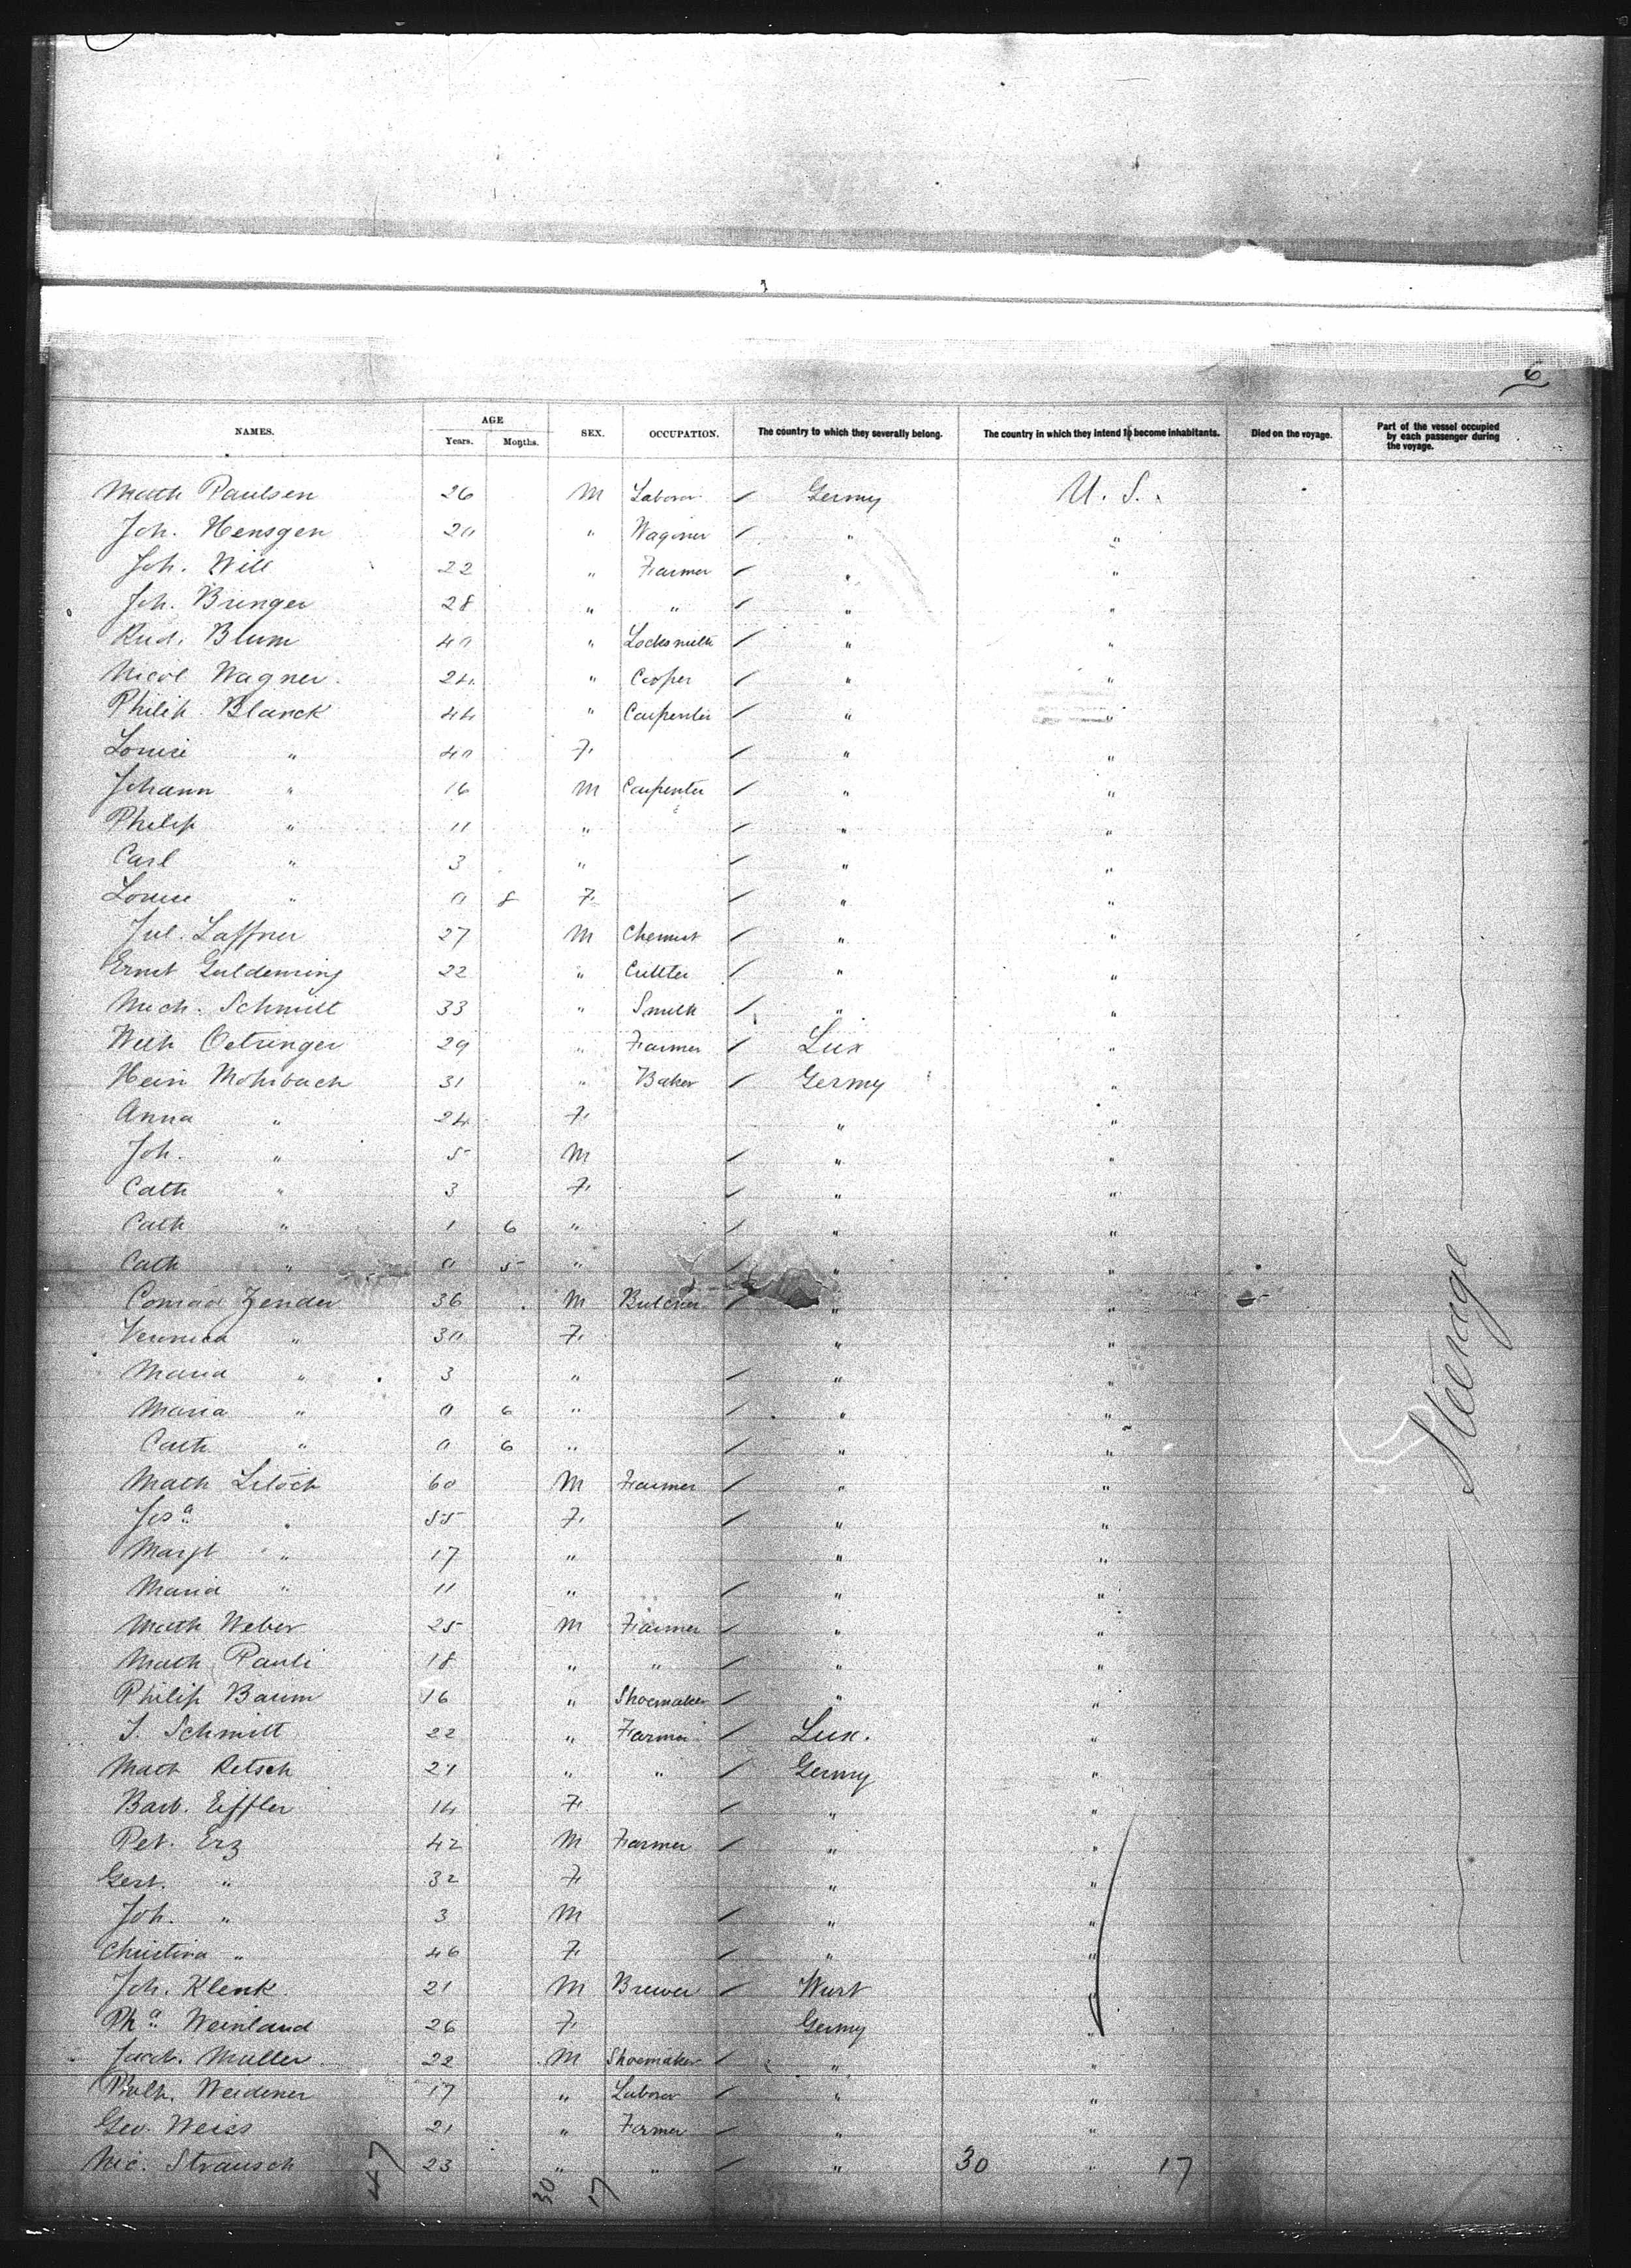 6
NAMES. AGE Years. Months. SEX. OCCUPATION. The country to which they severally belong. The country in which they intend to become inhabitants. Died on the voyage. Part of the vessel occupied by each passenger during the voyage.
Math Paulsen 26 M Laborer / Germy U. S.
Joh. Hensgen 20 " Wagoner / " "
Joh. Will 22 " Farmer / " "
Joh. Bringer 28 " " / " "
Rud. Blum 40 " Locksmith / " "
Nicol Wagner 24 " Cooper / " "
Philip Blanck 44 " Carpenter / " "
Louise " 40 F. / " "
Johann " 16 M Carpenter / " "
Philip " 11 " / " "
Carl " 3 " / " "
Louise " 0 8 F. / " "
Jul. Laffner 27 M Chemist / " "
Ernst Guldenring 22 " Cutter / " "
Mich. Schmitt 33 " Smith / " "
Oetringer 29 " Farmer / Lux "
Hein Mohrbach 31 " Baker / Germy "
Anna " 24 F. " "
Joh. " 5 M / " "
Cath " 3 F. / " "
Cath " 1 6 " / " "
Cath " 0 5 " / " "
Conrad Zender 36 M Butcher / " "
Veronica " 30 F. " "
Maria " 3 " / " "
Maria " 0 6 " / " "
Cath " 0 6 " / " "
Math 60 M Farmer / " "
Josa " 55 F. / " "
Margt " 17 " " "
Maria " 11 " / " "
Math Weber 25 M Farmer / " "
Math Pauli 18 " " / " "
Philip Baum 16 " Shoemaker / " "
J. Schmitt 22 " Farmer / Lux. "
Math Retsch 21 " " / Germy "
Barb. Eiffler 14 F. / " "
Pet. Erz 42 M Farmer / " "
Gert. " 32 F. " "
Joh. " 3 M / " "
Christina " 46 F. / " "
Joh. Klenk 21 M Brewer / Wurt "
Pha Weinland 26 F. Germy "
Jacob. Muller 22 M Shoemaker / " "
Weidener 17 " Laborer / " "
Geo. Weiss 21 " Farmer / " "
Nic. Strausch 23 " " / " "
Steerage
47 30 17 30 17